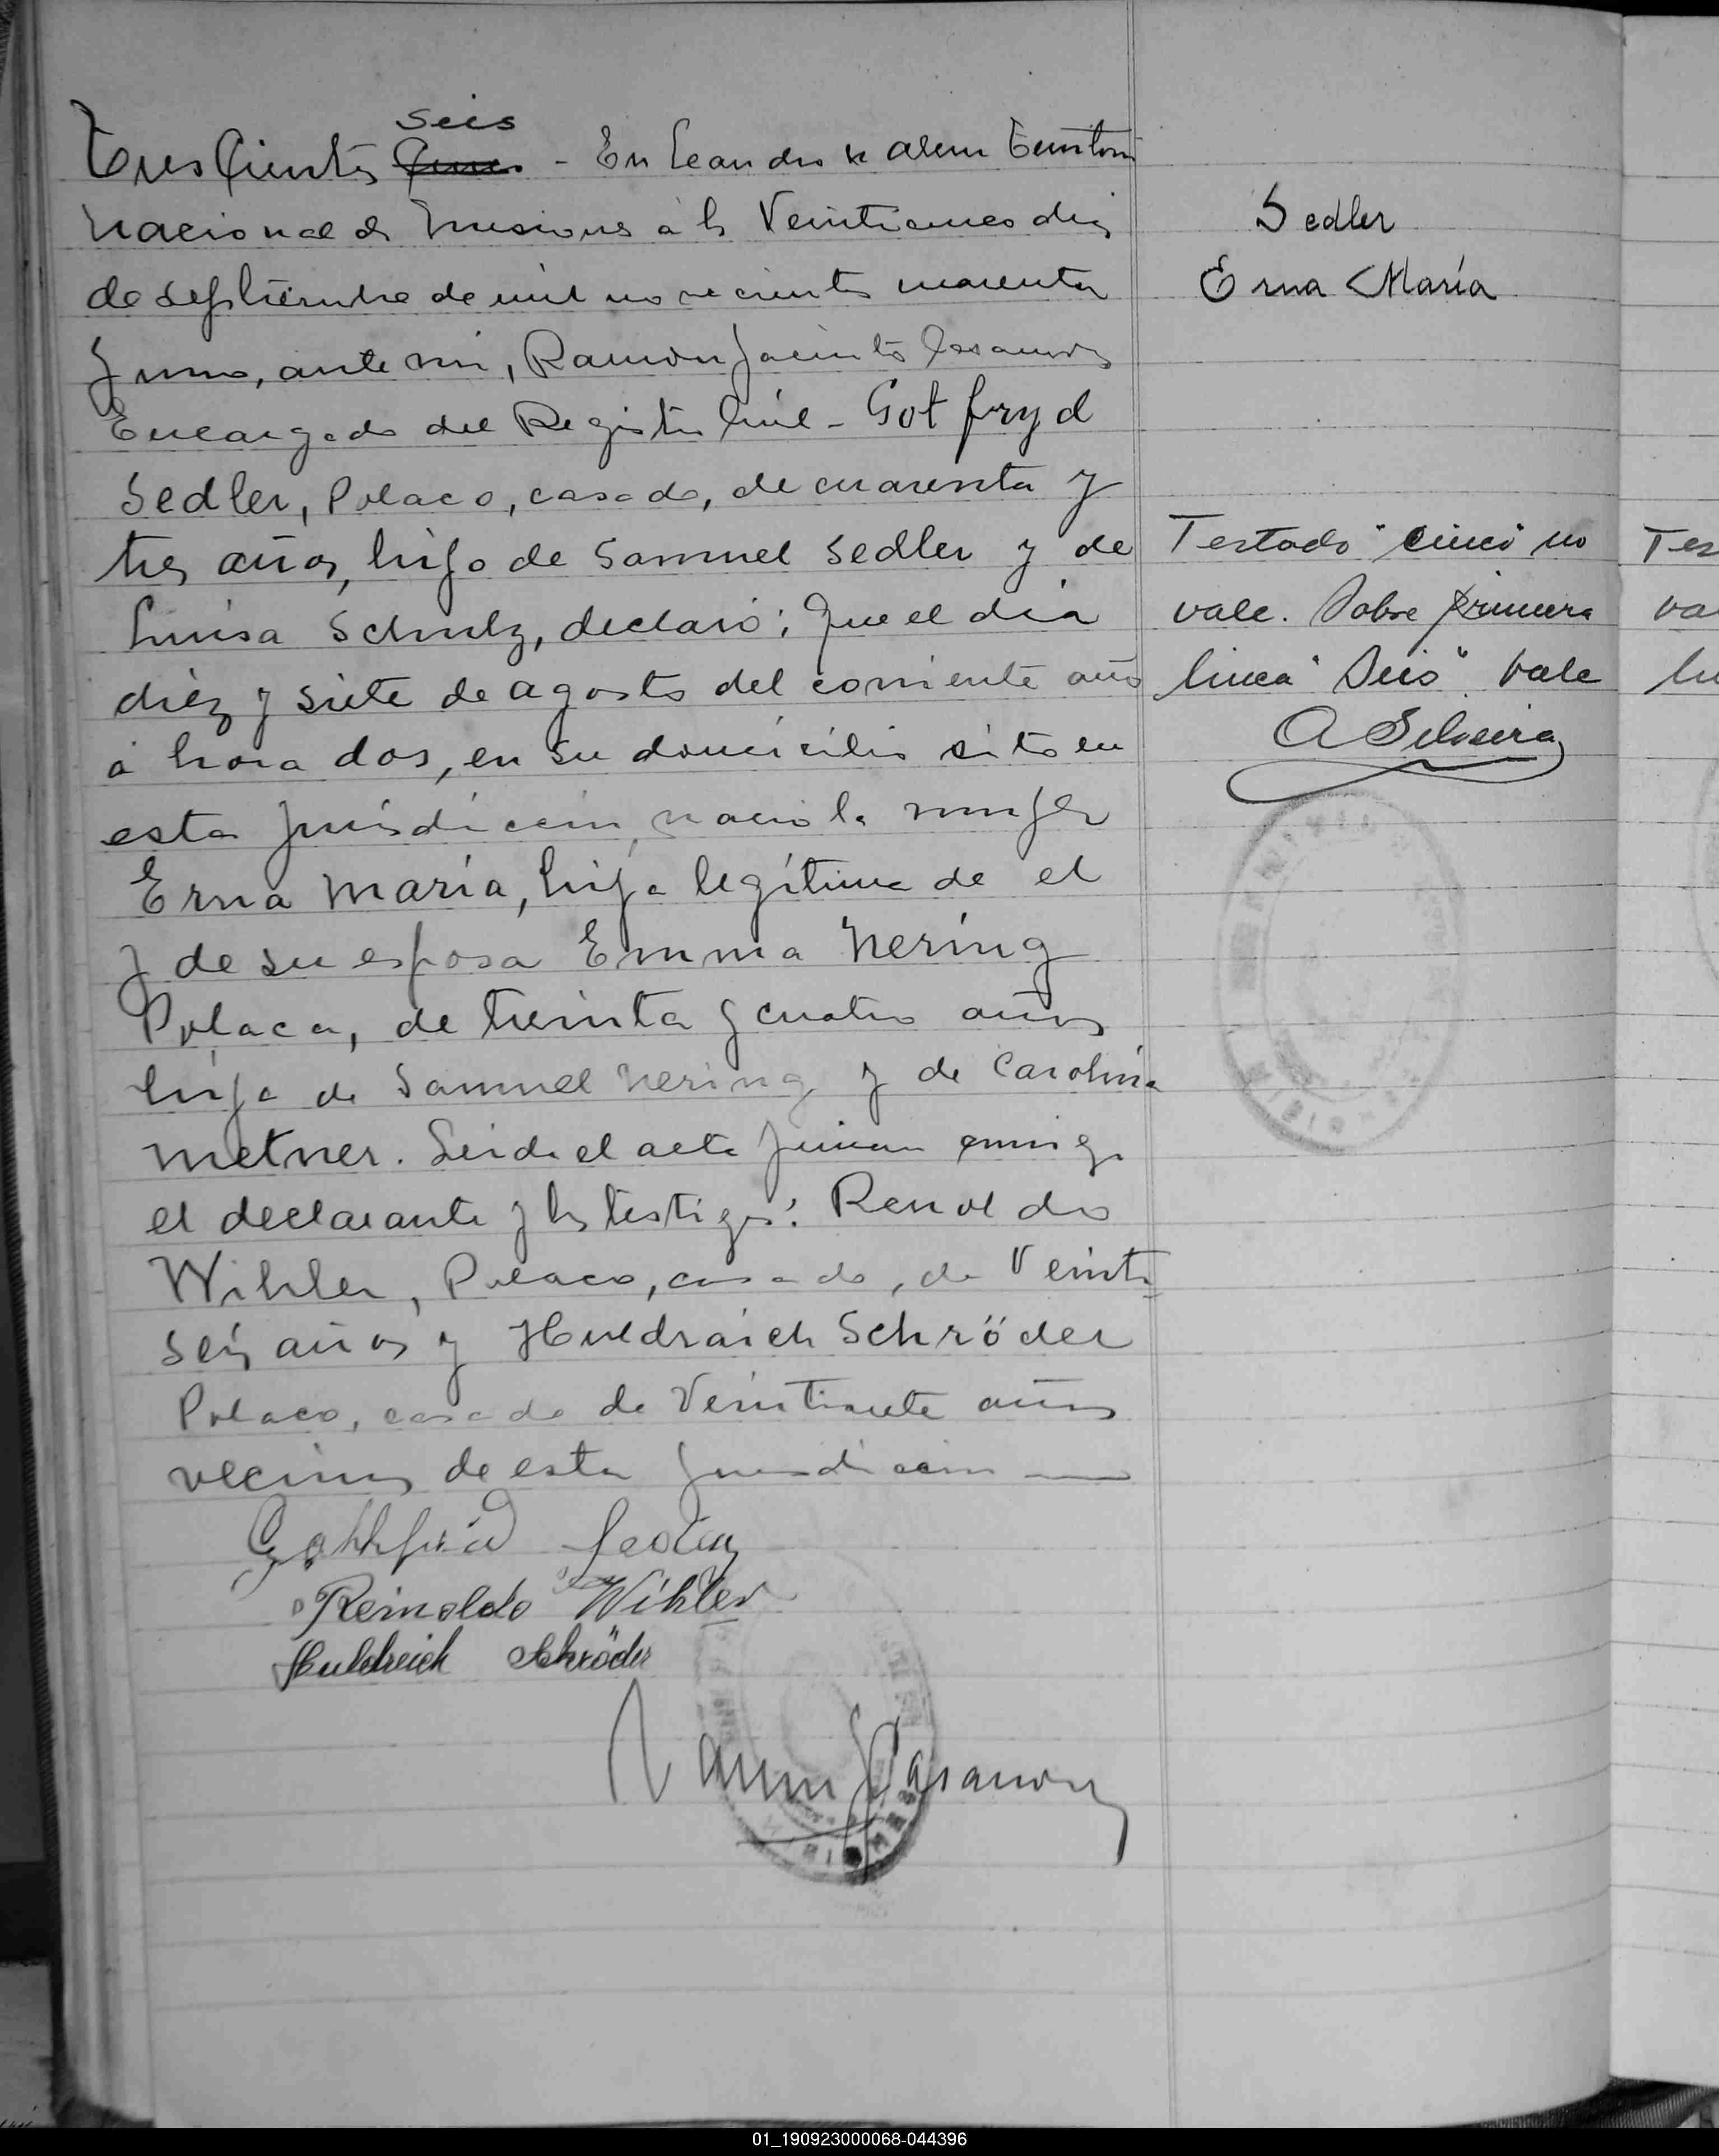 seis
Tres Cientos cinco - En Leandro N Alem Territorio
Nacional de Misiones a los Veinticinco dias
de septiembre de mil novecientos cuarenta
y uno, ante mi, Ramon Jacinto Casanova
Encargado del Registro Civil - Gotfryd
Sedler, Polaco, casado, de cuarenta y
tres años, hijo de Samuel Sedler y de
Luisa Schulz, declaró; Que el dia
diez y siete de agosto del corriente año
a hora dos, en su domicilio sito en
esta jurisdiccion, nacio la mujer
Erna María, hija legítima de el
y de su esposa Emma Nering
Polaca, de treinta y cuatro años
hija de Samuel Nering y de Carolina
Metner. Leida el acta firman conmigo
el declarante y los testigos: Renoldo
Wihler, Polaco, casado, de Veinti
seis años y Huldraich Schröder
Polaco, casado de Veintisiete años
vecinos de esta jurisdiccion
Gottfried Sedler
Reinoldo Wihler
Huldreich Schröder
Ramon J Casanova
Sedler
Erna María
Testado "cinco" no
vale. Sobre primera
linea "Seis". Vale
A Silveira
Tes
va
li
01_190923000068-044396